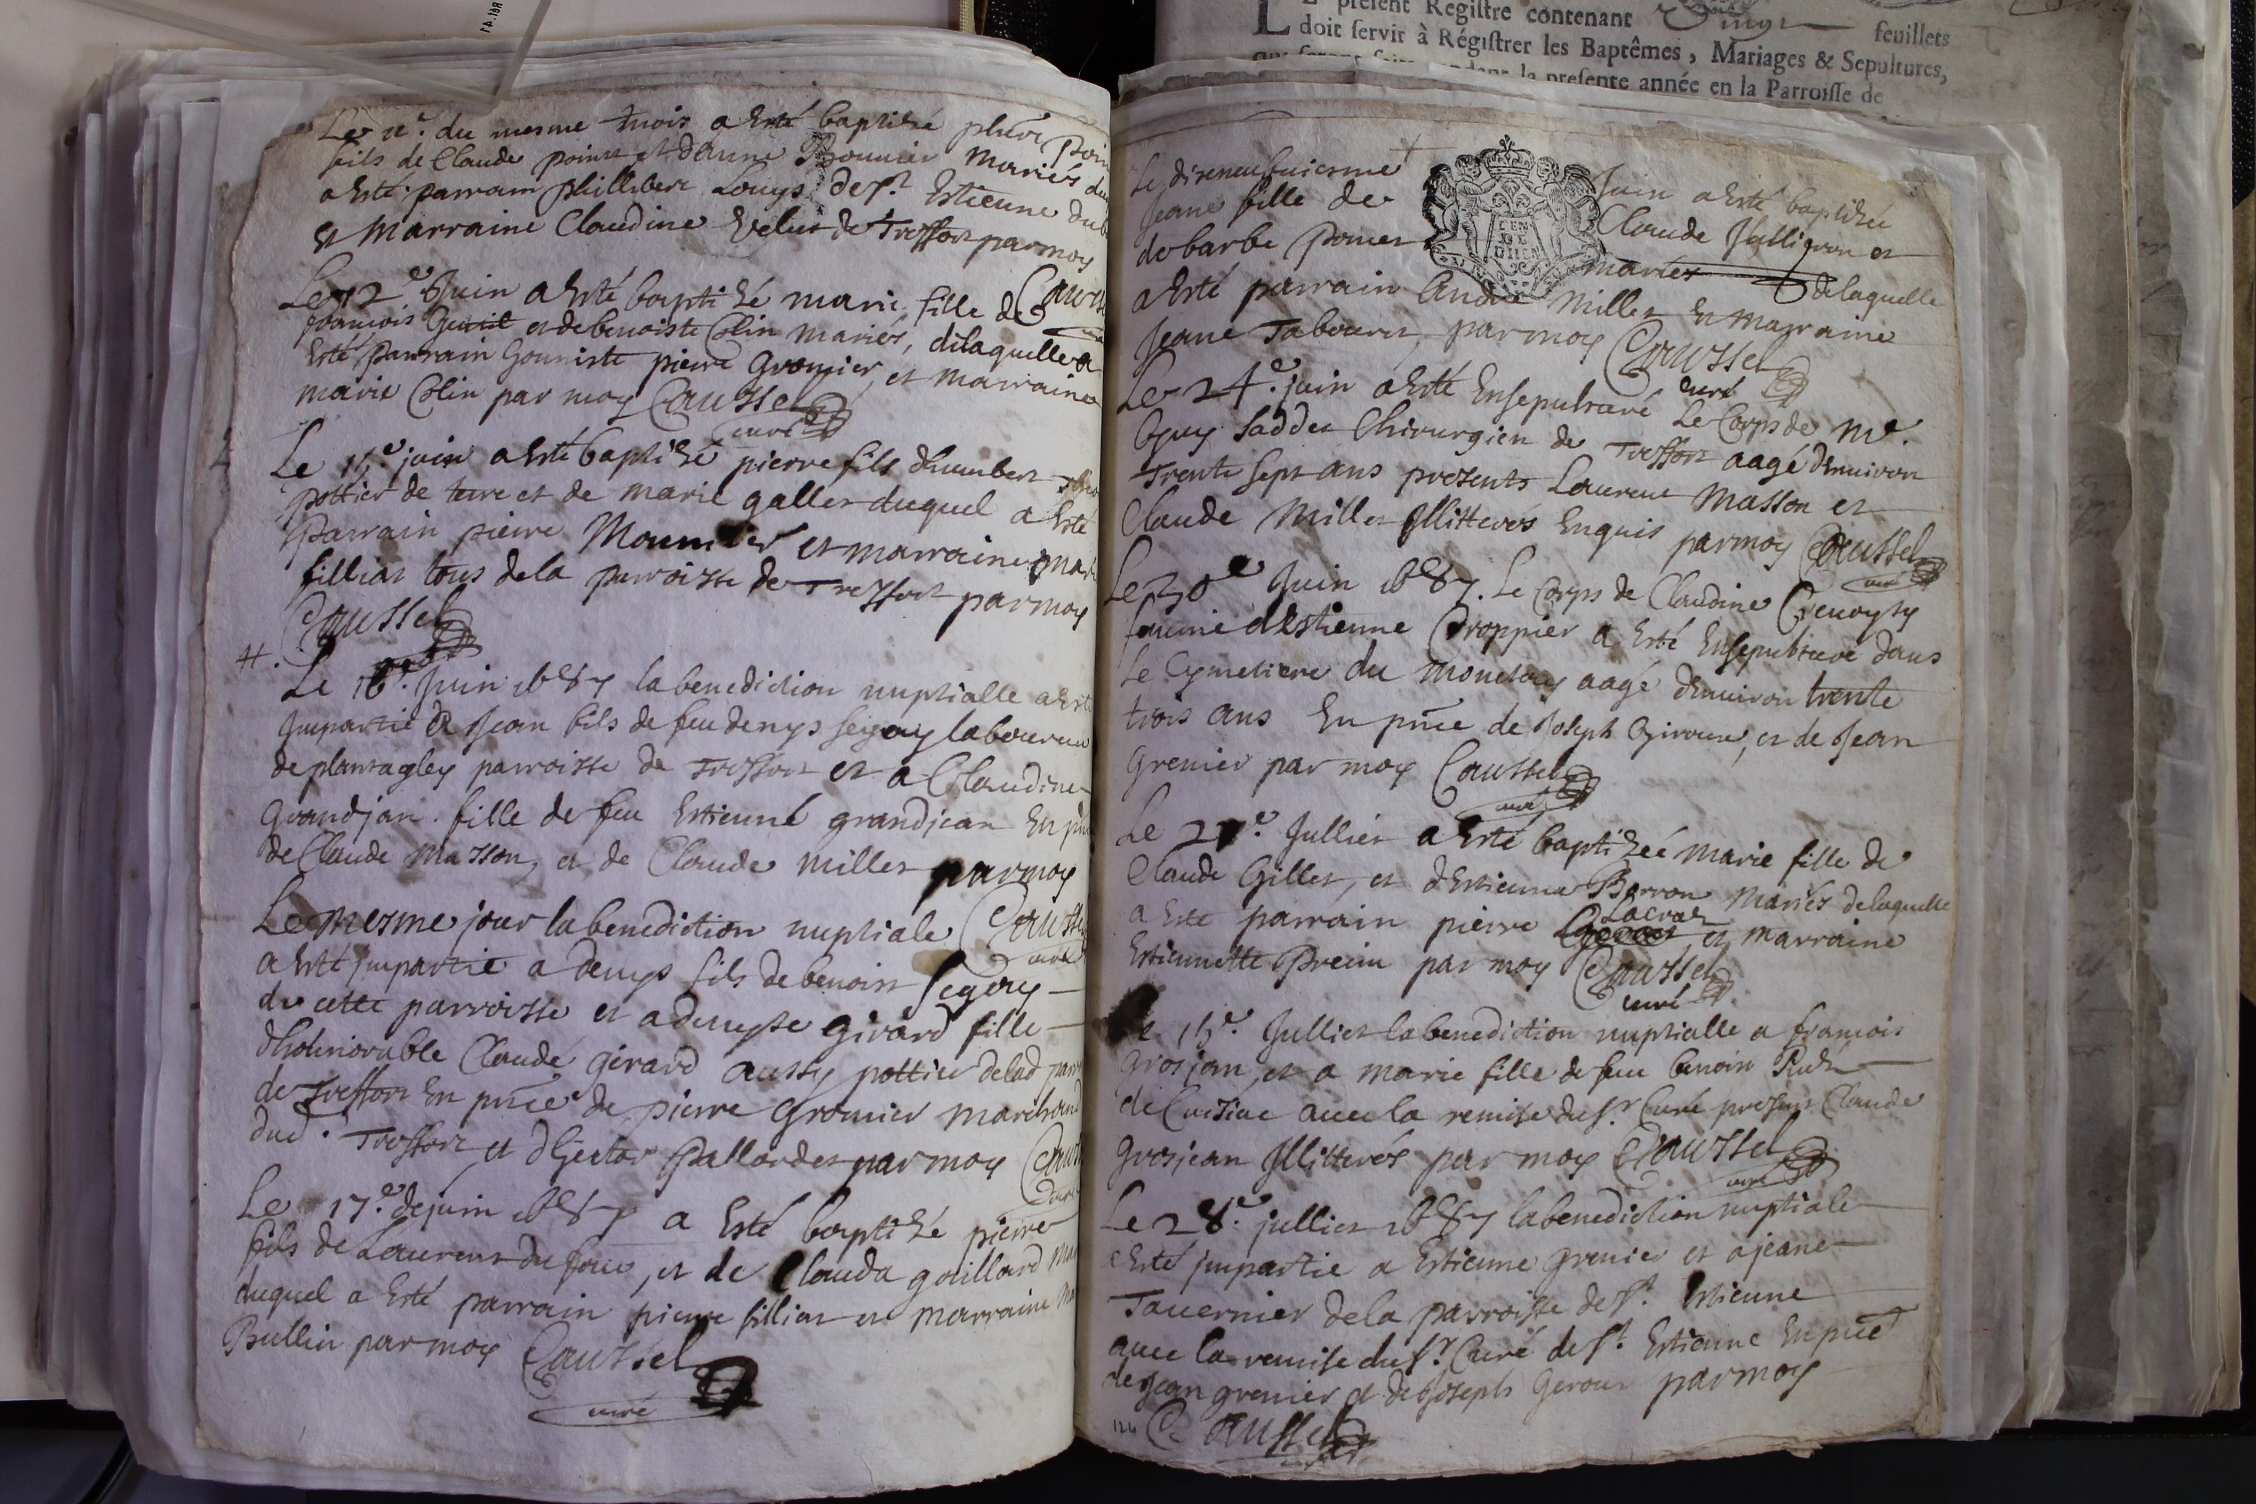 Réf. 41
L present Registre contenant Vingt feuillets
doit servir à Régistrer les Baptêmes, Mariages & Sepultures,
la presente année en la Parroisse de
Le 11e. du mesme mois a Esté baptizé
fils de Claude point et danne Bonnier Mariés du
a Esté parrain phillibert Louys de st Estienne du
Et Marraine Claudine Velut de Treffort par moy
Caussel
Le 12e Juin a Esté baptizé marie fille de
francois Gentil et de benoiste Colin mariés, delaquelle a
Esté parrain honniste pierre Gromier, et marraine
marie Colin par moy Caussel
curé
Le 15e juin a Esté baptizé pierre fils dhumbert
pottier de terre et de marie gallet duquel a Esté
parrain pierre Mounier et marraine marie
filliat tous de la parroisse de Treffort par moy
Caussel
curé
Le 16e. Juin 1687 la benediction nuptialle a esté
Impartie a Jean fils de feu denys segouy laboureur
de plantagley parroisse de Treffort et a Claudine
Grandjan. fille de feu Estienne grandjean En pnce
de Claude Masson, et de Claude millet par moy
Caussel
curé
Le mesme jour la benediction nuptiale
a Esté jmpartie a denys fils de benoist segouy
de cette parroisse et a denyse girard fille
dhonnorable Claude girard aussy pottier delad parr
de Treffort En pnce de pierre Gromier marchand
dud. Treffort et dhector Pallordet par moy Caussel
curé
Le 17e. de juin 1687 a Esté baptizé pierre
fils de Laurent du four, et de Clauda gaillard
duquel a Esté parrain pierre filliat et marraine
Bullin par moy Caussel
curé
Le diseneufuiesme Juin a Esté baptizée
Jeane fille de Claude Jullieron et
de barbe poncet mariés delaquelle
a Esté parrain André Millet Et marraine
Jeane Tabouret, par moy Caussel
curé
Le 24e. juin a Esté Ensepulturé Le Corps de Me.
Guy Saddet Chirurgien de Treffort aagé denuiron
Trente sept ans presents Laurent Masson et
Claude Millet Jllitterés Enquis par moy Caussel
curé
Le 30e Juin 1687. Le Corps de Claudine
femme dEstienne Croppier a Esté Ensepulturé dans
Le Cymetiere du aagé denuiron trente
trois ans En pnce de Joseph Giroux, et de Jean
Grenier par moy Caussel
curé
Le Jullier a Esté baptizée Marie fille de
Claude Gillet, et dEstienna Borron Mariés delaquelle
Lacroz
a Este parrain pierre et marraine
Estiennette Prein par moy Caussel
curé
Le 15e. Jullier la benediction nuptialle a francois
Grosjan, et a marie fille de feu benoist
de Cuisiac auec la remise du sr. Curé present Claude
Grosjean Jllitterés par moy Caussel
curé
Le 28e. jullier 1687 la benediction nuptiale
a Esté jmpartie a Estienne Grenier et a jeane
Tauernier de la parroisse de st. Estienne
auec la remise du sr. Curé de st. Estienne En pnce
de Jean grenier et de Joseph Geroux par moy
Caussel